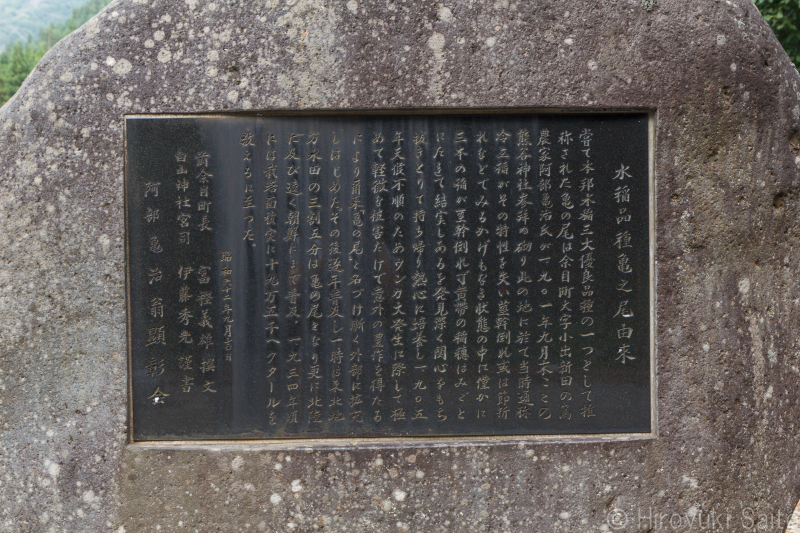 水稲品種亀之尾由来
嘗て本邦水稲三大優良品種の一つとして推
称された亀の尾は余目町大字小出新田の篤
農家阿部亀治氏が一九〇一年九月末ごとの
熊谷神社参拝の砌り此の地に於て当時通称
冷立稲がその特性を失い茎幹倒れ或は節折
れなどでみるかげもなき状態の中に僅かに
三本の稲が茎幹倒れ可黄帯の稲穂はみごと
にたれて結実しあるを発見深く関心をもち
抜きとりて持ち帰り熱心に培養し一九〇五
年天候不順のためウンカ大発生に際して極
めて軽微な被害だけで意外の豊作を得たる
により爾来亀の尾と名づけ漸く外部に拡充
しはじめたその後逐年普及し一時は東北地
方水田の三割五分は亀の尾となり更に北陸
に及び遠く朝鮮にまで普及、一九三四年頃
には栽培面積実に十九万五千ヘクタールを
数えるに至った。
昭和六十二年九月吉日
前余目町長 富樫義雄 撰文
白山神社宮司 伊藤秀光 謹書
阿部亀治翁顕彰会
© Hiroyuki Saito